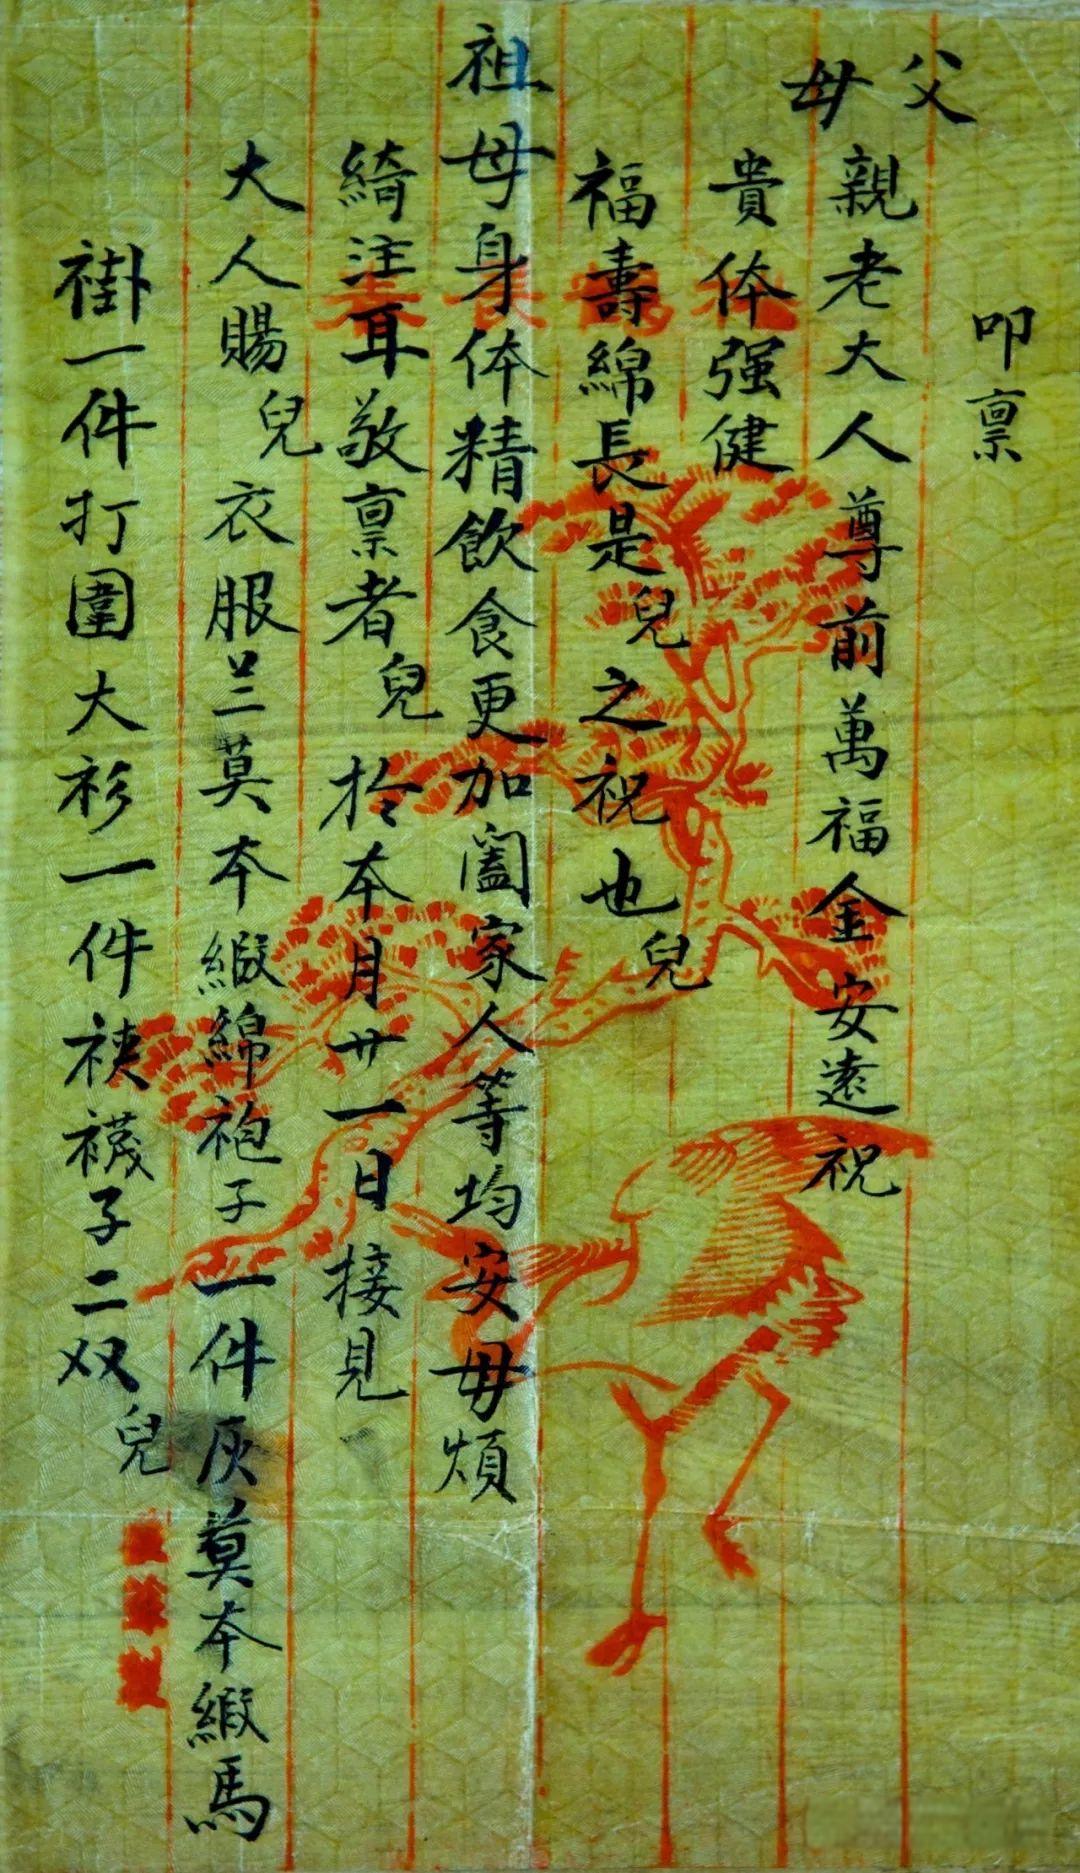 叩禀
父
母
親老大人尊前萬福金安遠祝
貴体强健
福壽綿長是兒之祝也兒
祖母身体精飲食更加闔家人等均安毋煩
綺注耳敬禀者兒於本月廿一日接見
大人賜兒衣服兰莫本緞綿袍子一件灰莫本緞馬
褂一件打圍大衫一件袂襪子二双兒